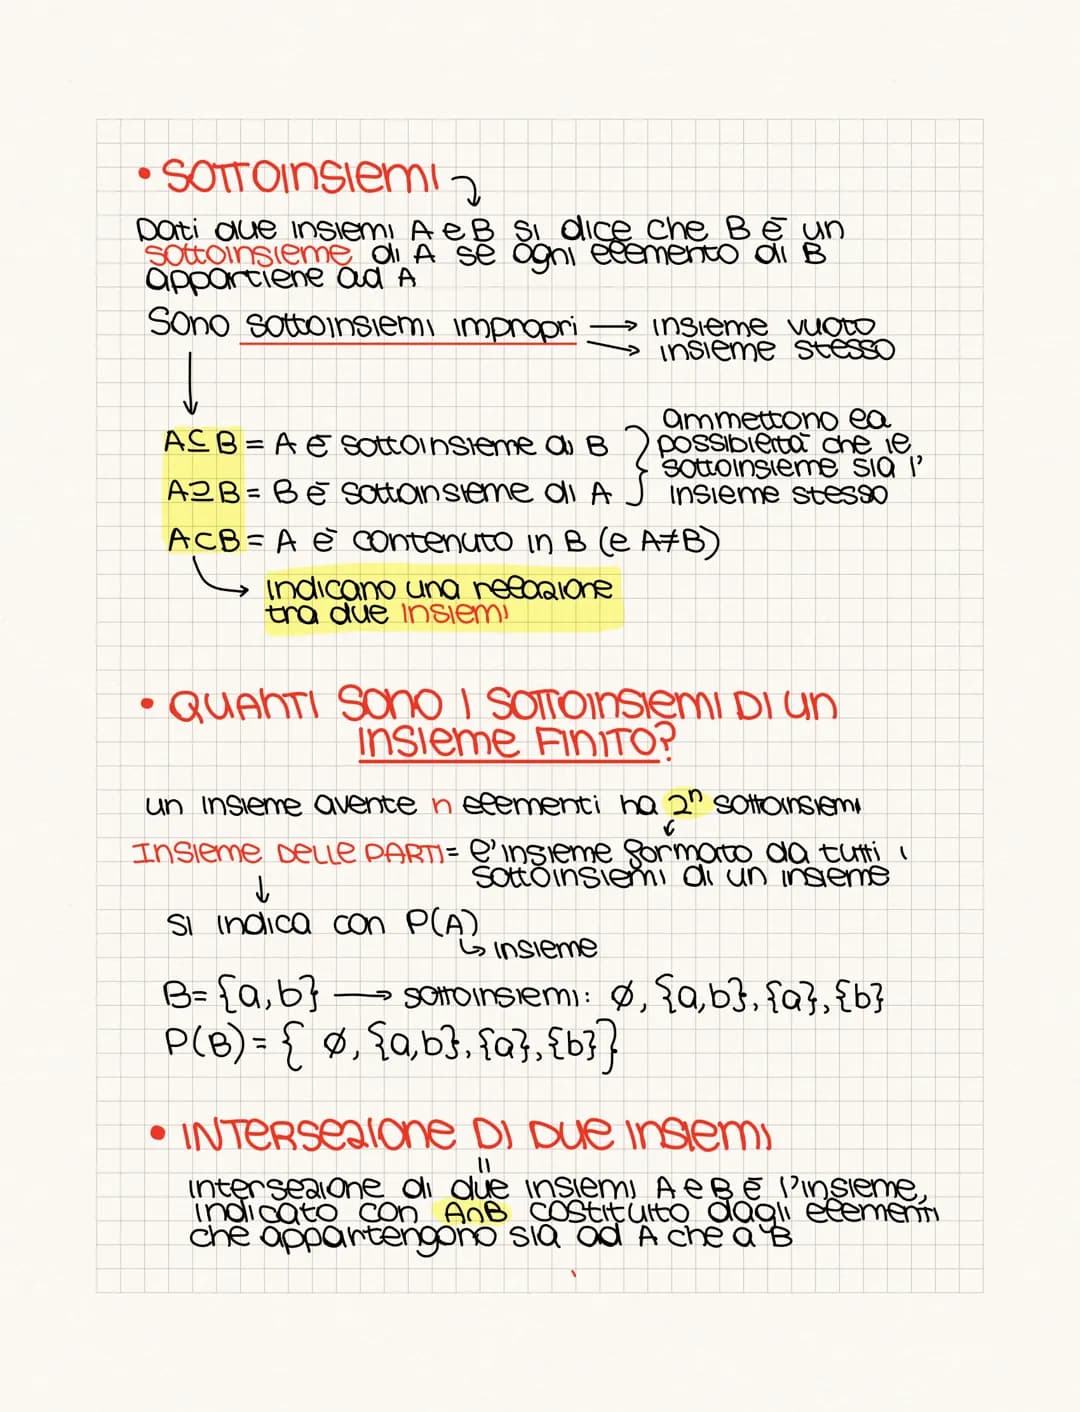 • SOTTOINSIEMI
Dati due insiemi A e B si dice che B è un
sottoinsieme di A se ogni elemento di B
appartiene ad A
Sono sottoinsiemi impropri → insieme vuoto
→ insieme stesso
A⊆B = A è sottoinsieme di B
A⊇B = B è sottoinsieme di A
ammettono la
possibilità che il
sottoinsieme sia l'
insieme stesso
A⊂B = A è contenuto in B (e A≠B)
indicano una relazione
tra due insiemi
• QUANTI SONO I SOTTOINSIEMI DI UN
INSIEME FINITO?
un insieme avente n elementi ha 2ⁿ sottoinsiemi
INSIEME DELLE PARTI = l'insieme formato da tutti i
sottoinsiemi di un insieme
si indica con P(A)
↳ insieme
B= {a,b} → sottoinsiemi: ∅, {a,b}, {a}, {b}
P(B) = { ∅, {a,b}, {a}, {b}}
• INTERSEZIONE DI DUE INSIEMI
intersezione di due insiemi A e B è l'insieme,
indicato con A∩B costituito dagli elementi
che appartengono sia ad A che a B